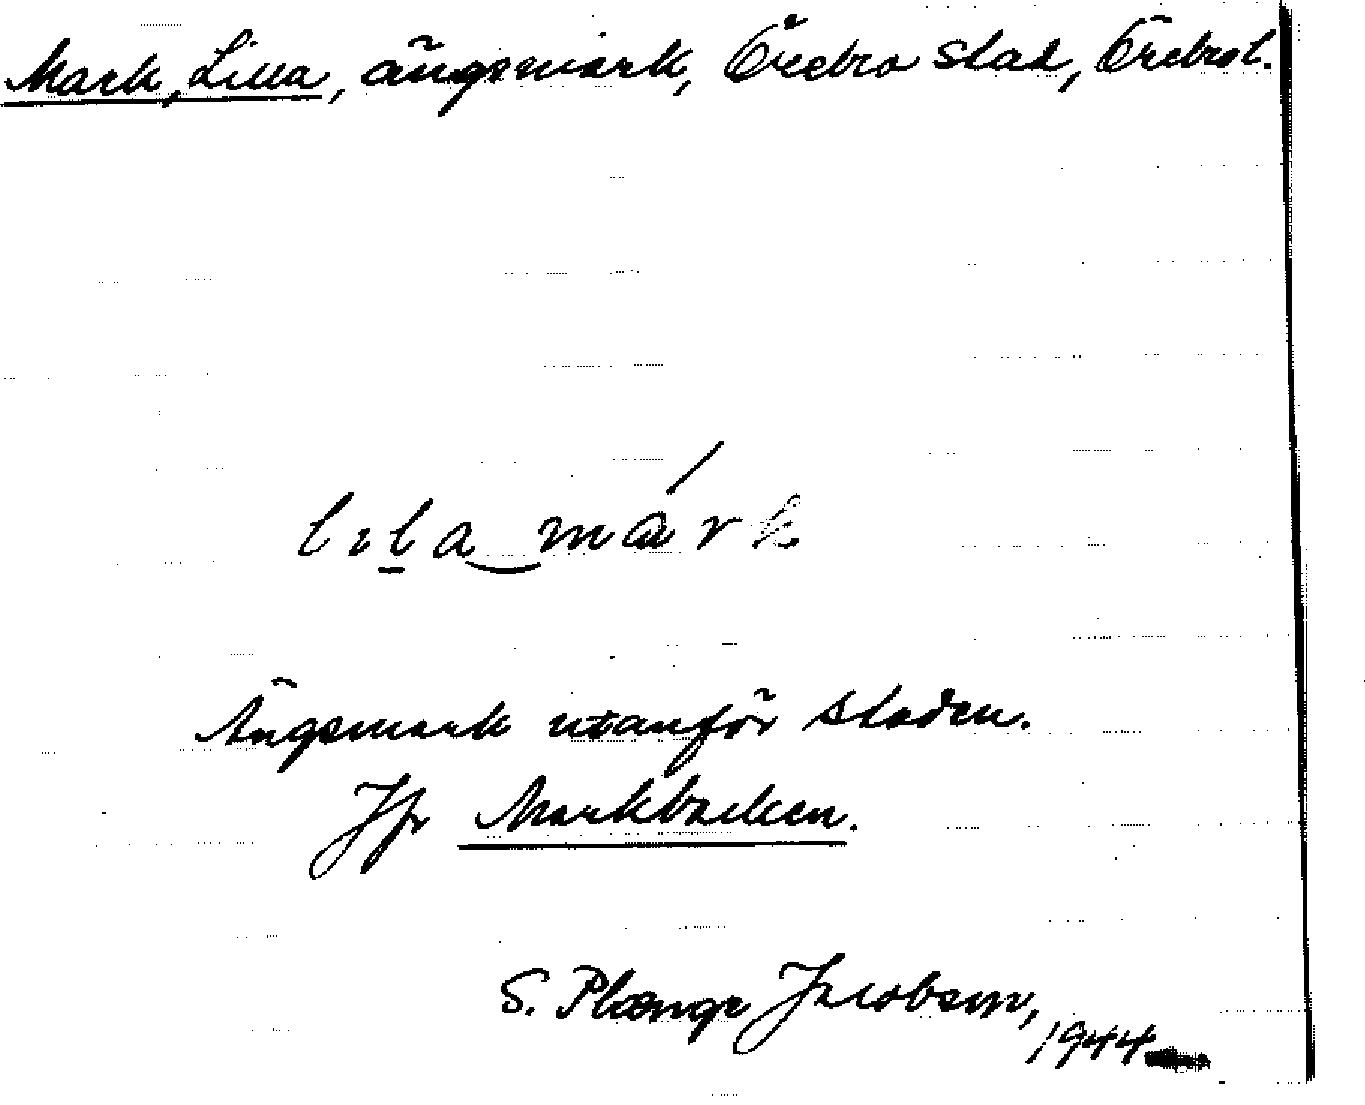 Mark, Lilla, ängsmark, Örebro stad, Örebro l.
lıla márk
Ängsmark utanför staden.
Jfr Markbacken.
S. Plænge Jacobson,
1944